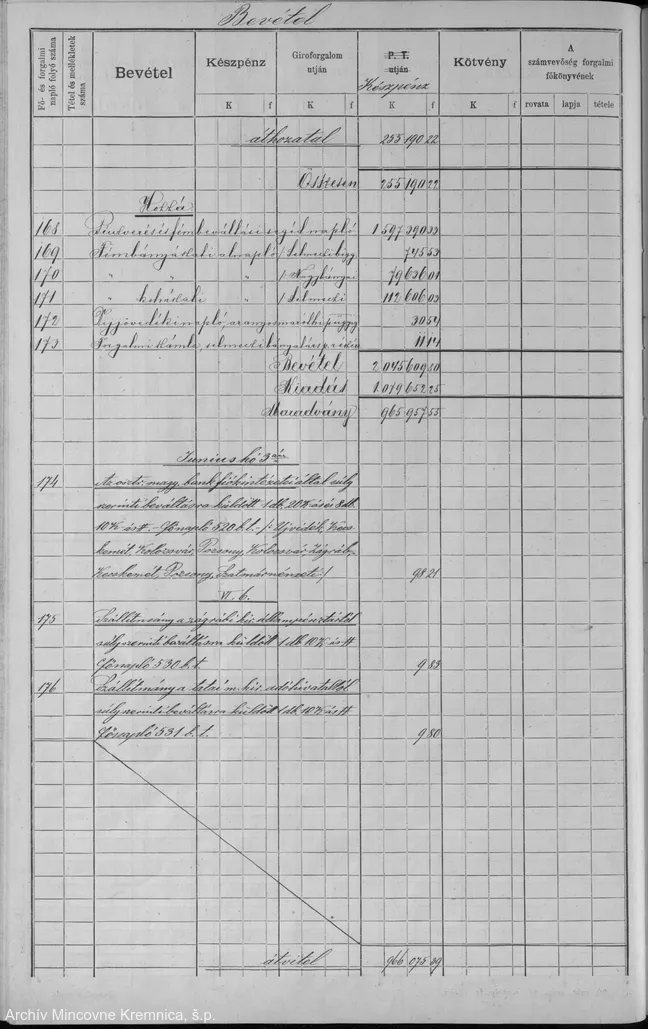 Bevétel
Fő- és forgalmi napló folyó száma
Tétel és mellékletek száma
Bevétel
Készpénz
Giroforgalom utján
P. T. utján
Készpénz
Kötvény
A számvevőség forgalmi főkönyvének
K f K f K f K f rovata lapja tétele
áthozatal 255 190 22
Összesen 255 190 22
Hozzá
168 segédnapló 1 597 290 33
169 Fémbányászati alnapló /: Selmeczi 745 53
170 " " " /: Nagybányai 79 636 01
171 " kohászati " /: Selmeczi 112 606 03
172 napló, 30 54
173 Forgalmi számla, selmeczi 11 14
Bevétel 2 045 609 80
Kiadás 1 079 652 25
Maradvány 965 957 55
Junius hó 3án
174 Az osztr. magy. bank fiókintézetei által súly
szerinti beváltásra küldött 1 db. 20 K ás és 8 db.
10 K ás tt. - Főnapló 520 b. t. - /: Ujvidék, Kecs
kemét, Kolozsvár, Pozsony, Kolozsvár, Zágráb,
Kecskemét, Pozsony, Szatmárnémeti :/ 98 21
VI. 6.
175 Szállitmány a zágrábi kir. állampénztártól
súly szerinti beváltásra küldött 1 db 10 K ás tt
Főnapló 530 b. t. 9 83
176 Szállitmány a tatai m. kir. adóhivataltól
súly szerinti beváltásra küldött 1 db. 10 K ás tt
Főnapló 531 b. t. 9 80
átvitel 966 075 39
Archív Mincovne Kremnica, š.p.